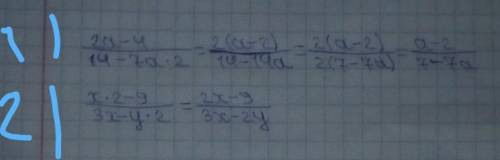 1) (2a-4)/(14-7a·2) = (2(a-2))/(14-14a) = (2(a-2))/(2(7-7a)) = (a-2)/(7-7a)
2) (x·2-9)/(3x-y·2) = (2x-9)/(3x-2y)